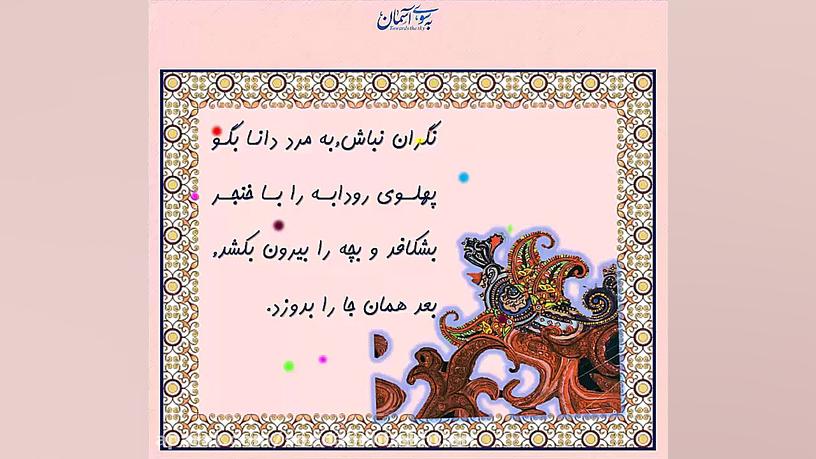 به سوی آسمان
Towards the sky
نگران نباش,به مرد دانا بگو
پهلوی رودابه را با خنجر
بشکافد و بچه را بیرون بکشد,
بعد همان جا را بدوزد.